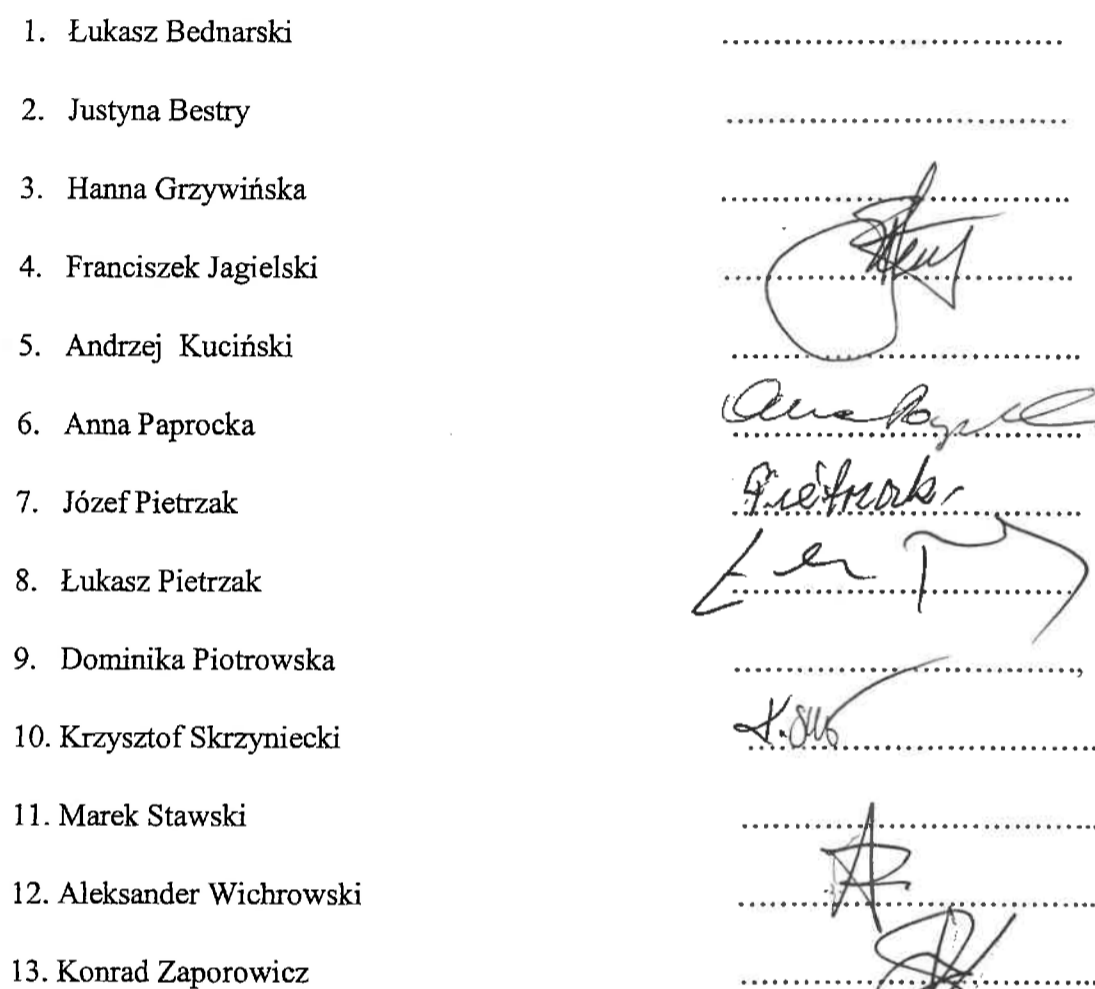 1. Łukasz Bednarski ..............................
2. Justyna Bestry ..............................
3. Hanna Grzywińska ..............................
4. Franciszek Jagielski ..............................
5. Andrzej Kuciński ..............................
6. Anna Paprocka ..............................
7. Józef Pietrzak Pietrzak
8. Łukasz Pietrzak ..............................
9. Dominika Piotrowska ..............................
10. Krzysztof Skrzyniecki ..............................
11. Marek Stawski ..............................
12. Aleksander Wichrowski ..............................
13. Konrad Zaporowicz ..............................